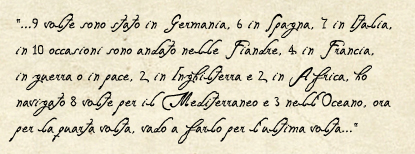 "...9 volte sono stato in Germania, 6 in Spagna, 7 in Italia,
in 10 occasioni sono andato nelle Fiandre, 4 in Francia,
in guerra o in pace, 2 in Inghilterra e 2 in Africa, ho
navigato 8 volte per il Mediterraneo e 3 nell'Oceano, ora
per la quarta volta, vado a farlo per l'ultima volta..."